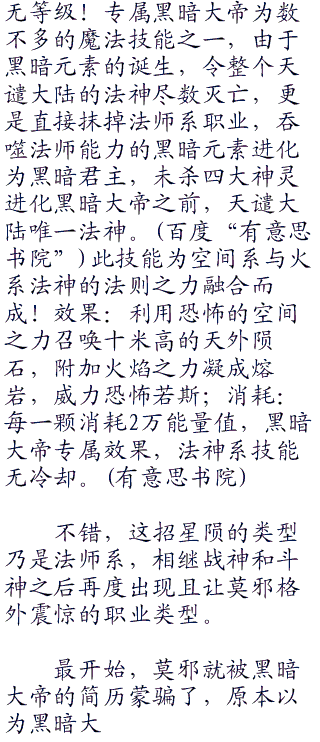 无等级！专属黑暗大帝为数
不多的魔法技能之一，由于
黑暗元素的诞生，令整个天
谴大陆的法神尽数灭亡，更
是直接抹掉法师系职业，吞
噬法师能力的黑暗元素进化
为黑暗君主，未杀四大神灵
进化黑暗大帝之前，天谴大
陆唯一法神。(百度“有意思
书院”)此技能为空间系与火
系法神的法则之力融合而
成！效果：利用恐怖的空间
之力召唤十米高的天外陨
石，附加火焰之力凝成熔
岩，威力恐怖若斯；消耗：
每一颗消耗2万能量值，黑暗
大帝专属效果，法神系技能
无冷却。(有意思书院)
不错，这招星陨的类型
乃是法师系，相继战神和斗
神之后再度出现且让莫邪格
外震惊的职业类型。
最开始，莫邪就被黑暗
大帝的简历蒙骗了，原本以
为黑暗大